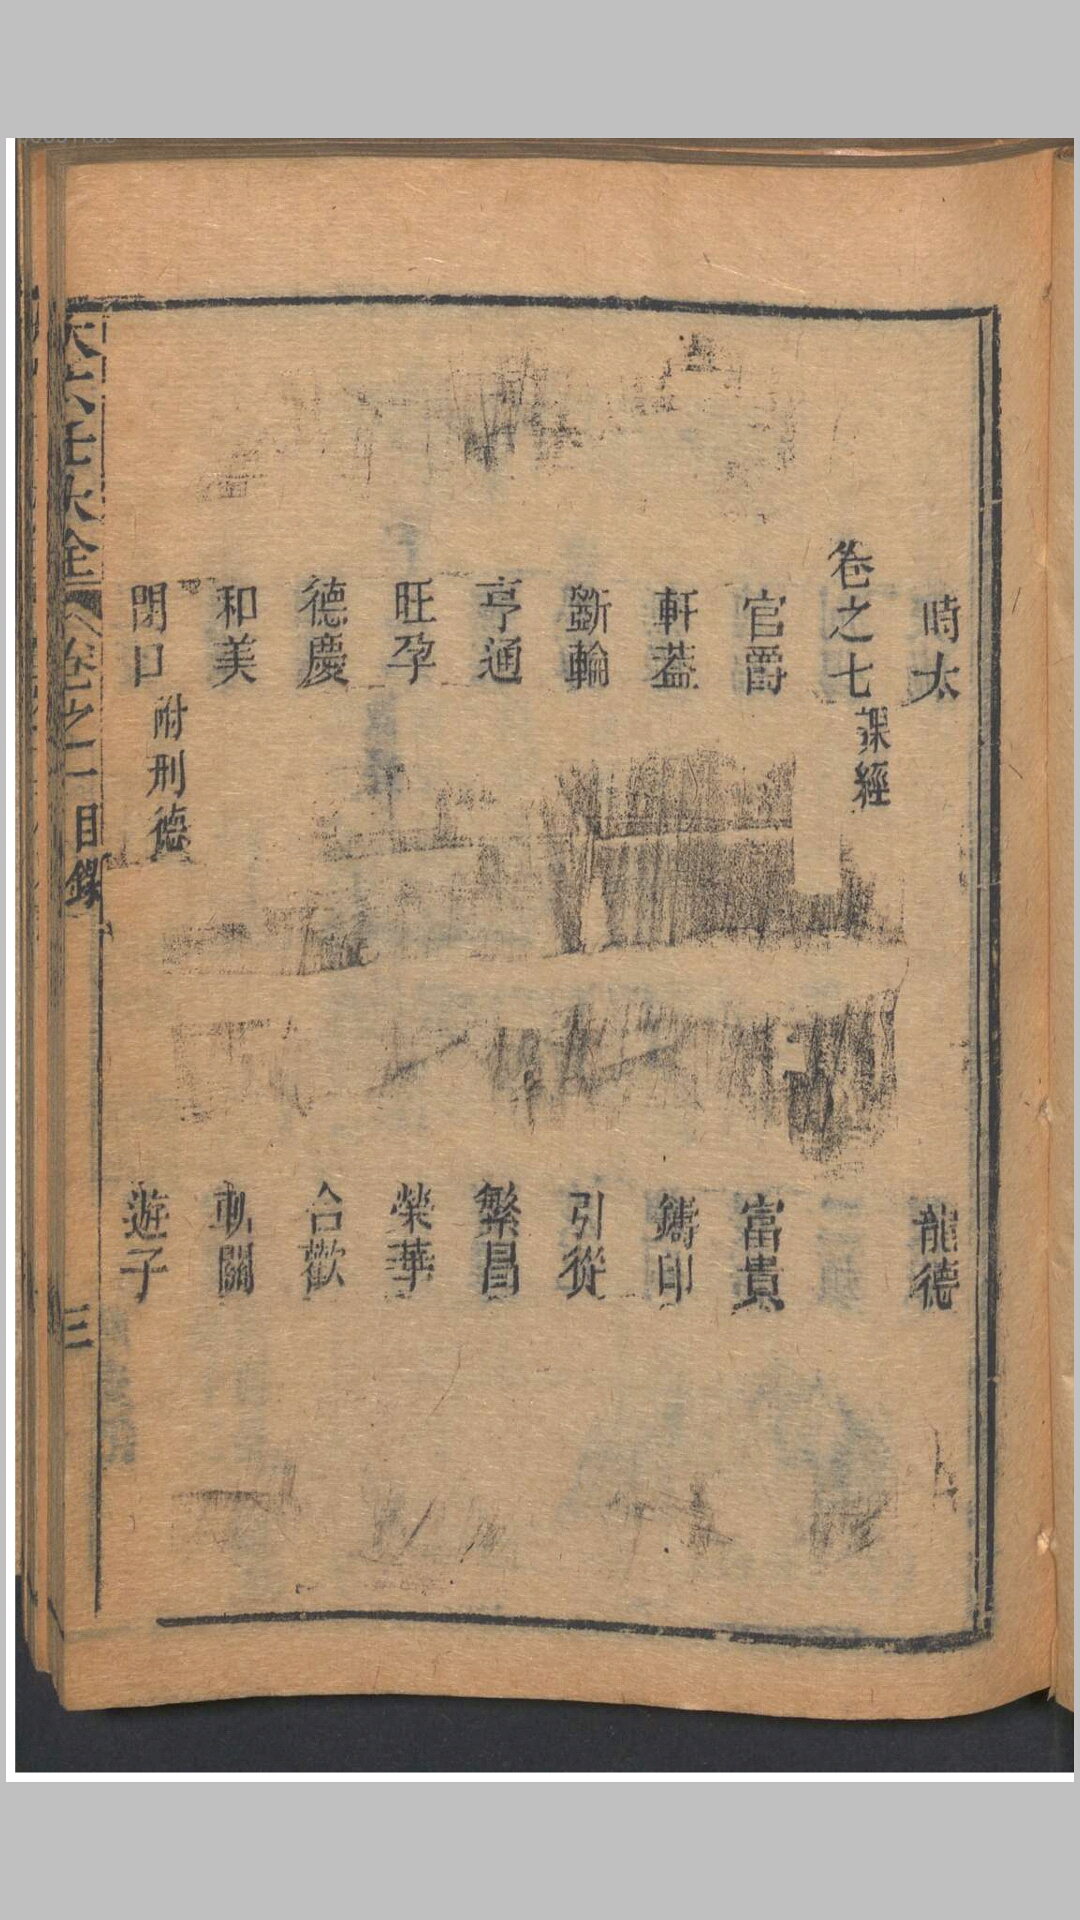 時太　龍德
卷之七 課經
官爵　富貴
軒蓋　鑄印
斵輪　引從
亨通　繁昌
旺孕　榮華
德慶　合歡
和美　斬關
閉口 附刑德　遊子
大六壬大全　卷之一目錄　三